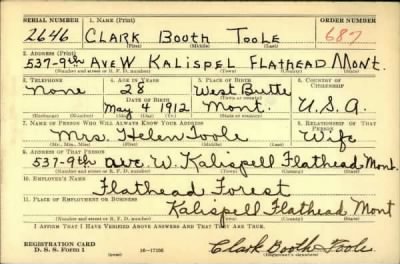 SERIAL NUMBER 1. NAME (Print) ORDER NUMBER
2646 CLARK BOOTH TOOLE 687
(First) (Middle) (Last)
2. ADDRESS (Print)
537-9th AVE W KALISPEL FLATHEAD MONT.
(Number and street or R. F. D. number) (Town) (County) (State)
3. TELEPHONE 4. AGE IN YEARS 5. PLACE OF BIRTH 6. COUNTRY OF CITIZENSHIP
None 28 West Butte
DATE OF BIRTH
May 4 1912 Mont. U.S.A.
(Exchange) (Number) (Mo.) (Day) (Yr.) (State or country)
7. NAME OF PERSON WHO WILL ALWAYS KNOW YOUR ADDRESS 8. RELATIONSHIP OF THAT PERSON
Mrs. Helen Toole Wife
(Mr., Mrs., Miss) (First) (Middle) (Last)
9. ADDRESS OF THAT PERSON
537-9th ave. W. Kalispell Flathead Mont.
(Number and street or R. F. D. number) (Town) (County) (State)
10. EMPLOYER'S NAME
Flathead Forest
11. PLACE OF EMPLOYMENT OR BUSINESS
Kalispell Flathead Mont
(Number and street or R. F. D. number) (Town) (County) (State)
I AFFIRM THAT I HAVE VERIFIED ABOVE ANSWERS AND THAT THEY ARE TRUE.
REGISTRATION CARD
D. S. S. Form 1 16-17105 Clark Booth Toole
(Registrant's signature)